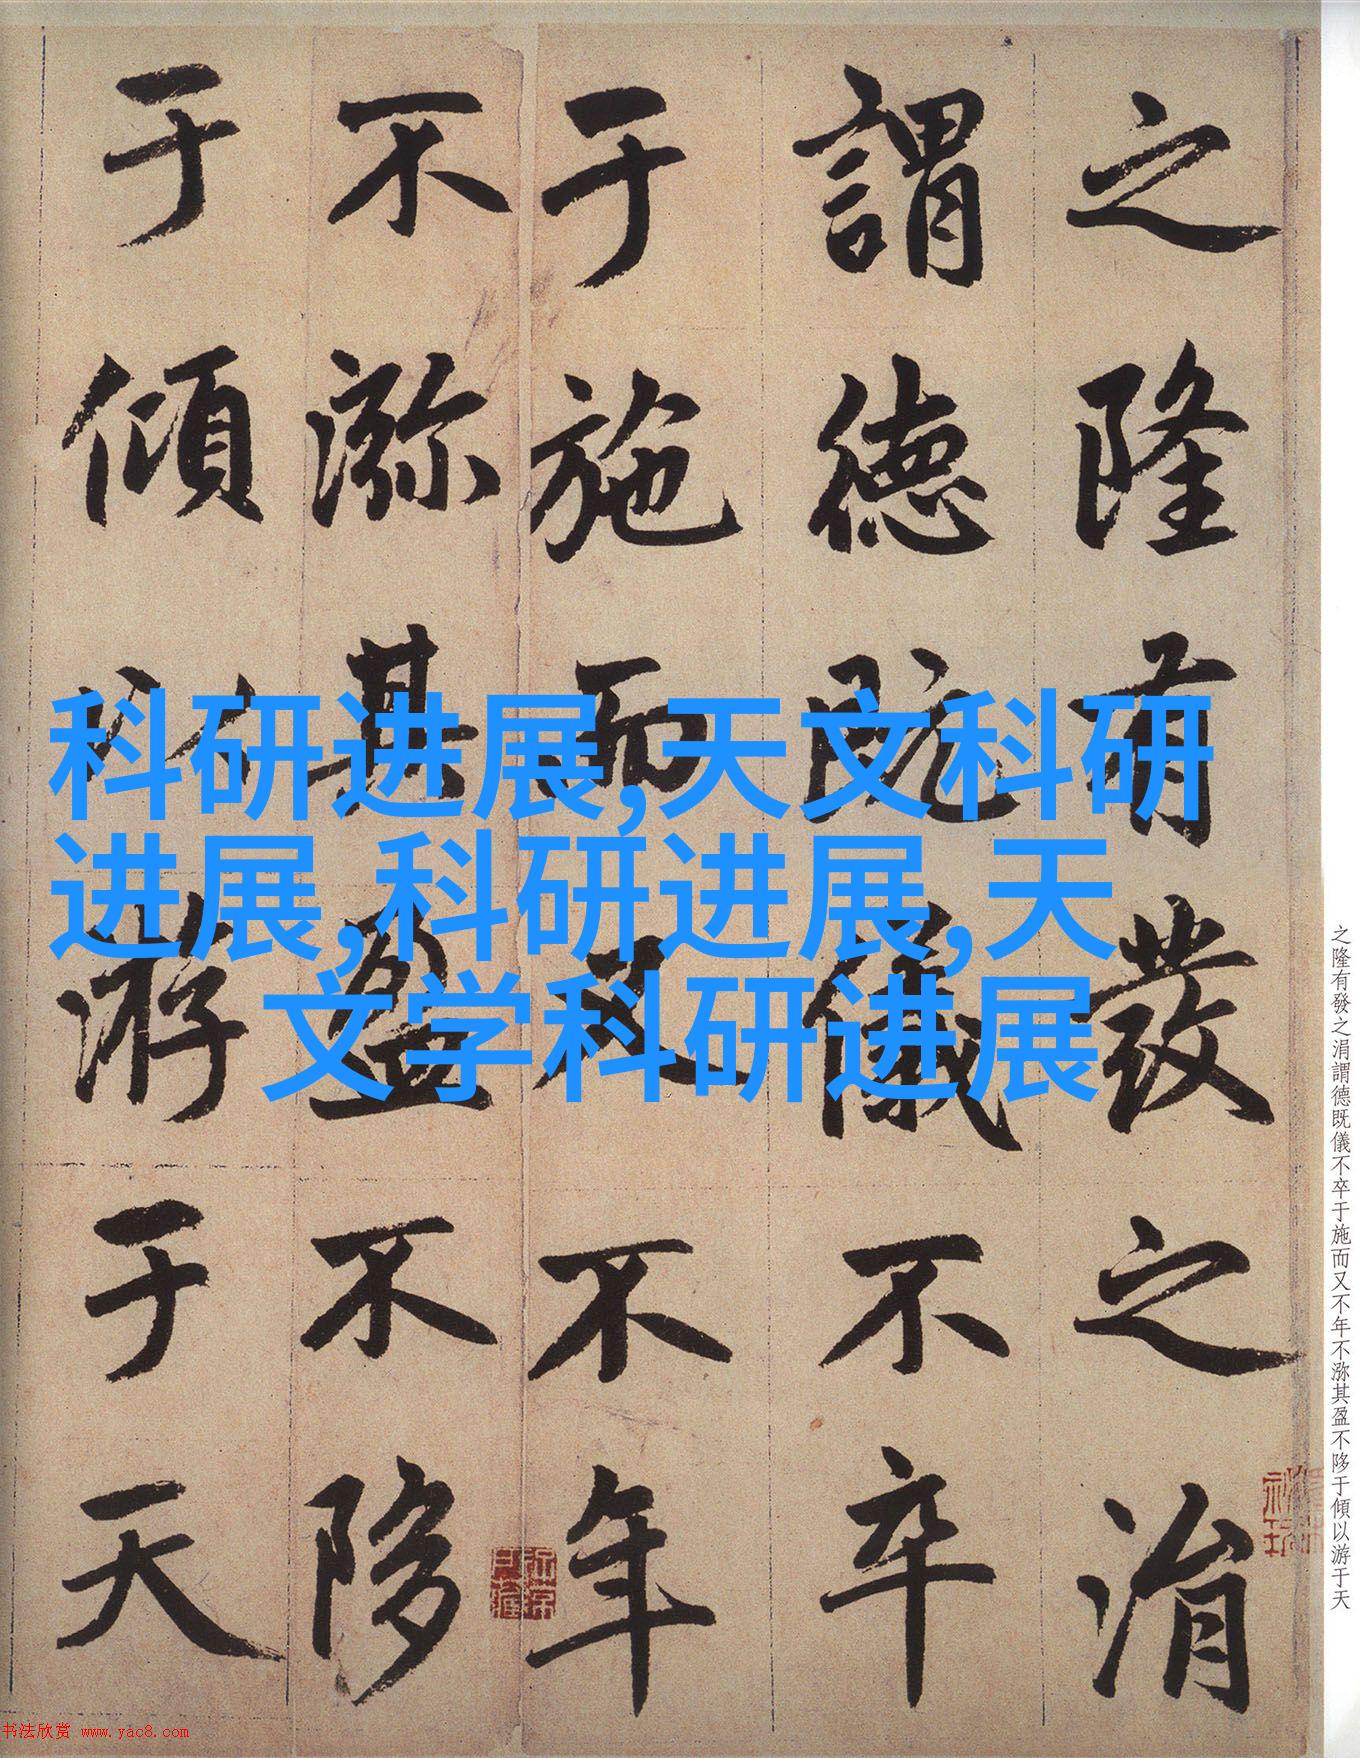 之隆有發之涓
謂德既儀不卒
于施而又不年
不㳽其盈不陊
于傾以游于天
科研进展,天文科研
进展,科研进展,天
文学科研进展
之隆有發之涓謂德既儀不卒于施而又不年不㳽其盈不陊于傾以游于天
书法欣赏 www.yac8.com